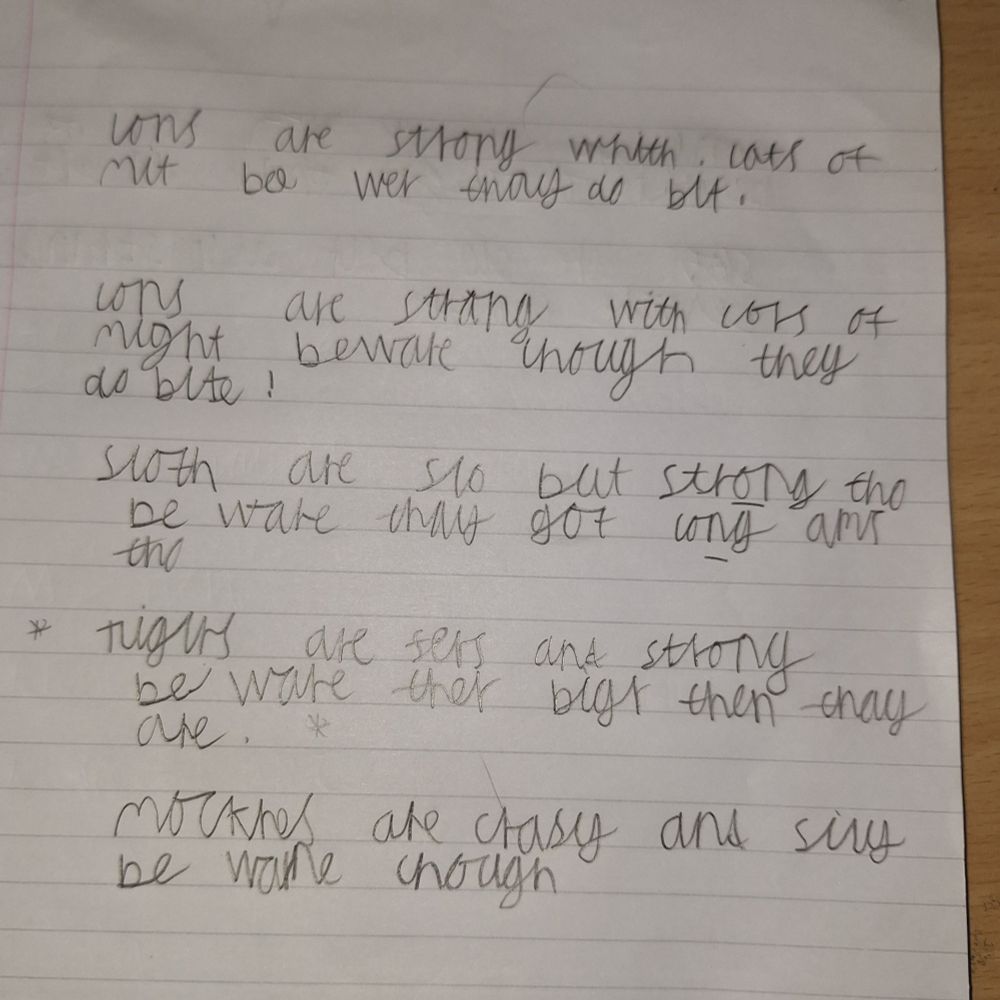 lions are strong whith. lots of
mit bee wer thay do bit.
lions are strang with lots of
might beware though they
do bite!
sloth are slo but strong tho
be ware thay got long ams
tho
* tigirs are fers and strong
be ware ther bigr then thay
are. *
mockres are crasy and sily
be ware though